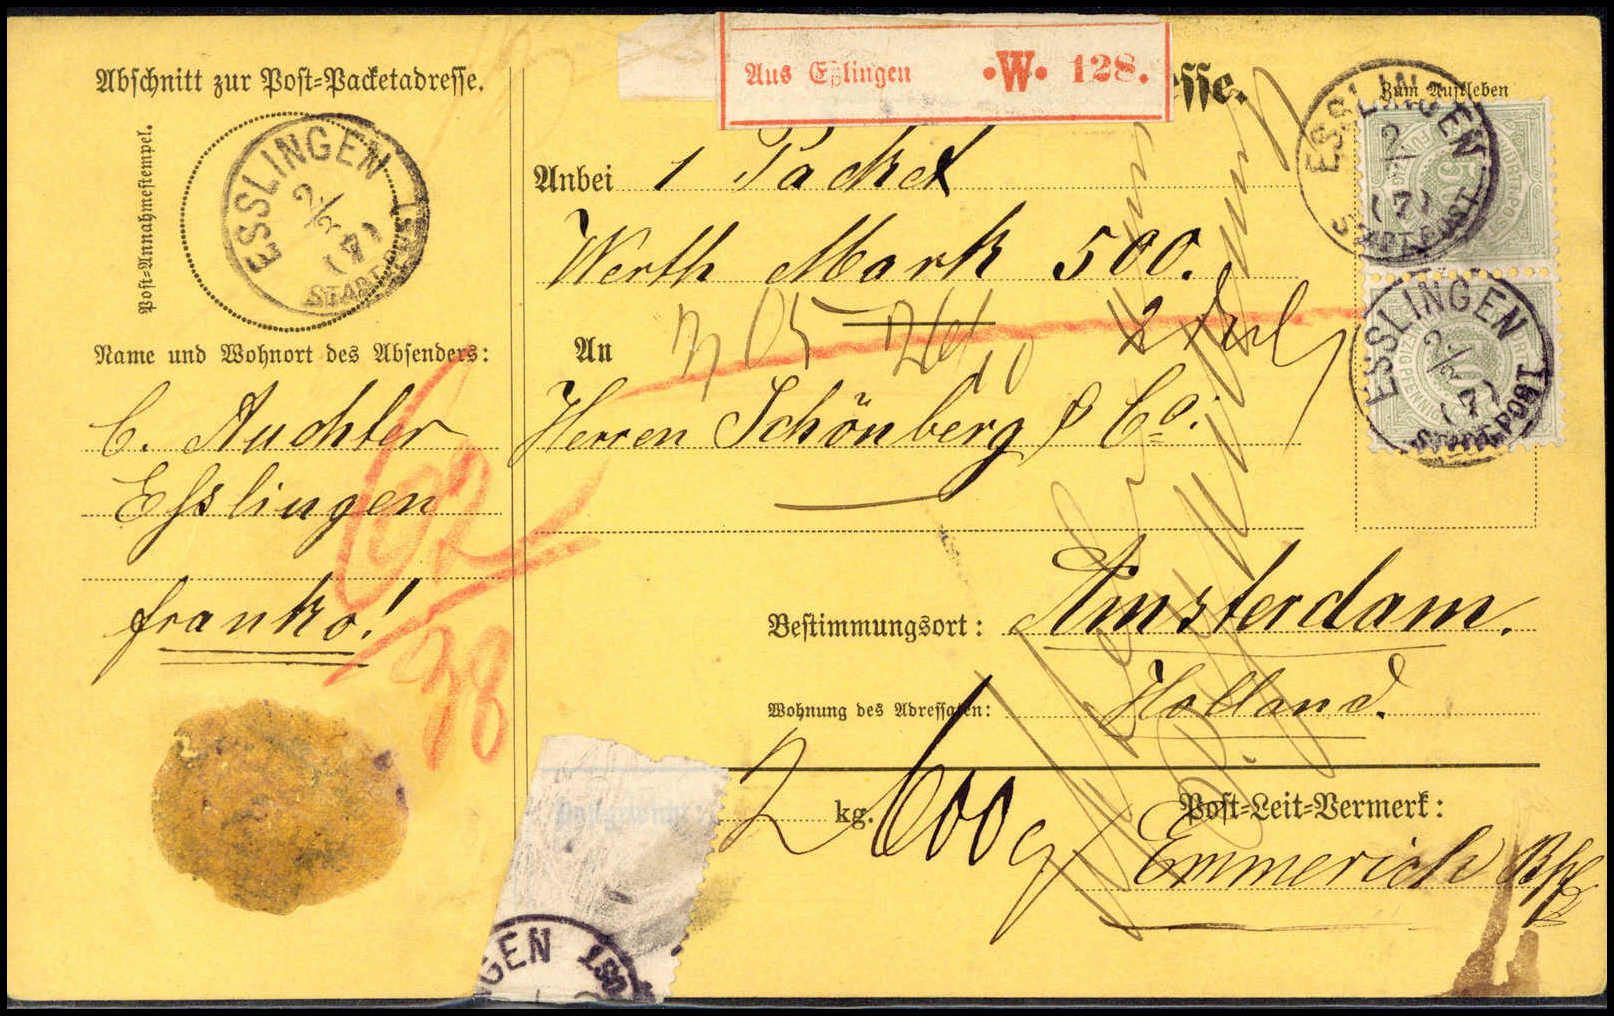 Abschnitt zur Post=Packetadresse.
Post-Annahmestempel.
ESSLINGEN
2/2
(7)
STADTPOST
Name und Wohnort des Absenders:
C. Auchter
Esslingen
franko!
62
38
Aus Eßlingen •W• 128.
esse.
Anbei 1 Packet
Werth Mark 500.
An
Herren Schönberg & Co.
Bestimmungsort: Amsterdam.
Holland.
Wohnung des Adressaten:
2 kg. 600 g
Post=Leit=Vermerk:
Emmerich Bhf
NGEN
Zum Aufkleben
ESSLINGEN
2/2
(7)
STADTPOST
50
ESSLINGEN
2/2
(7)
STADTPOST
50